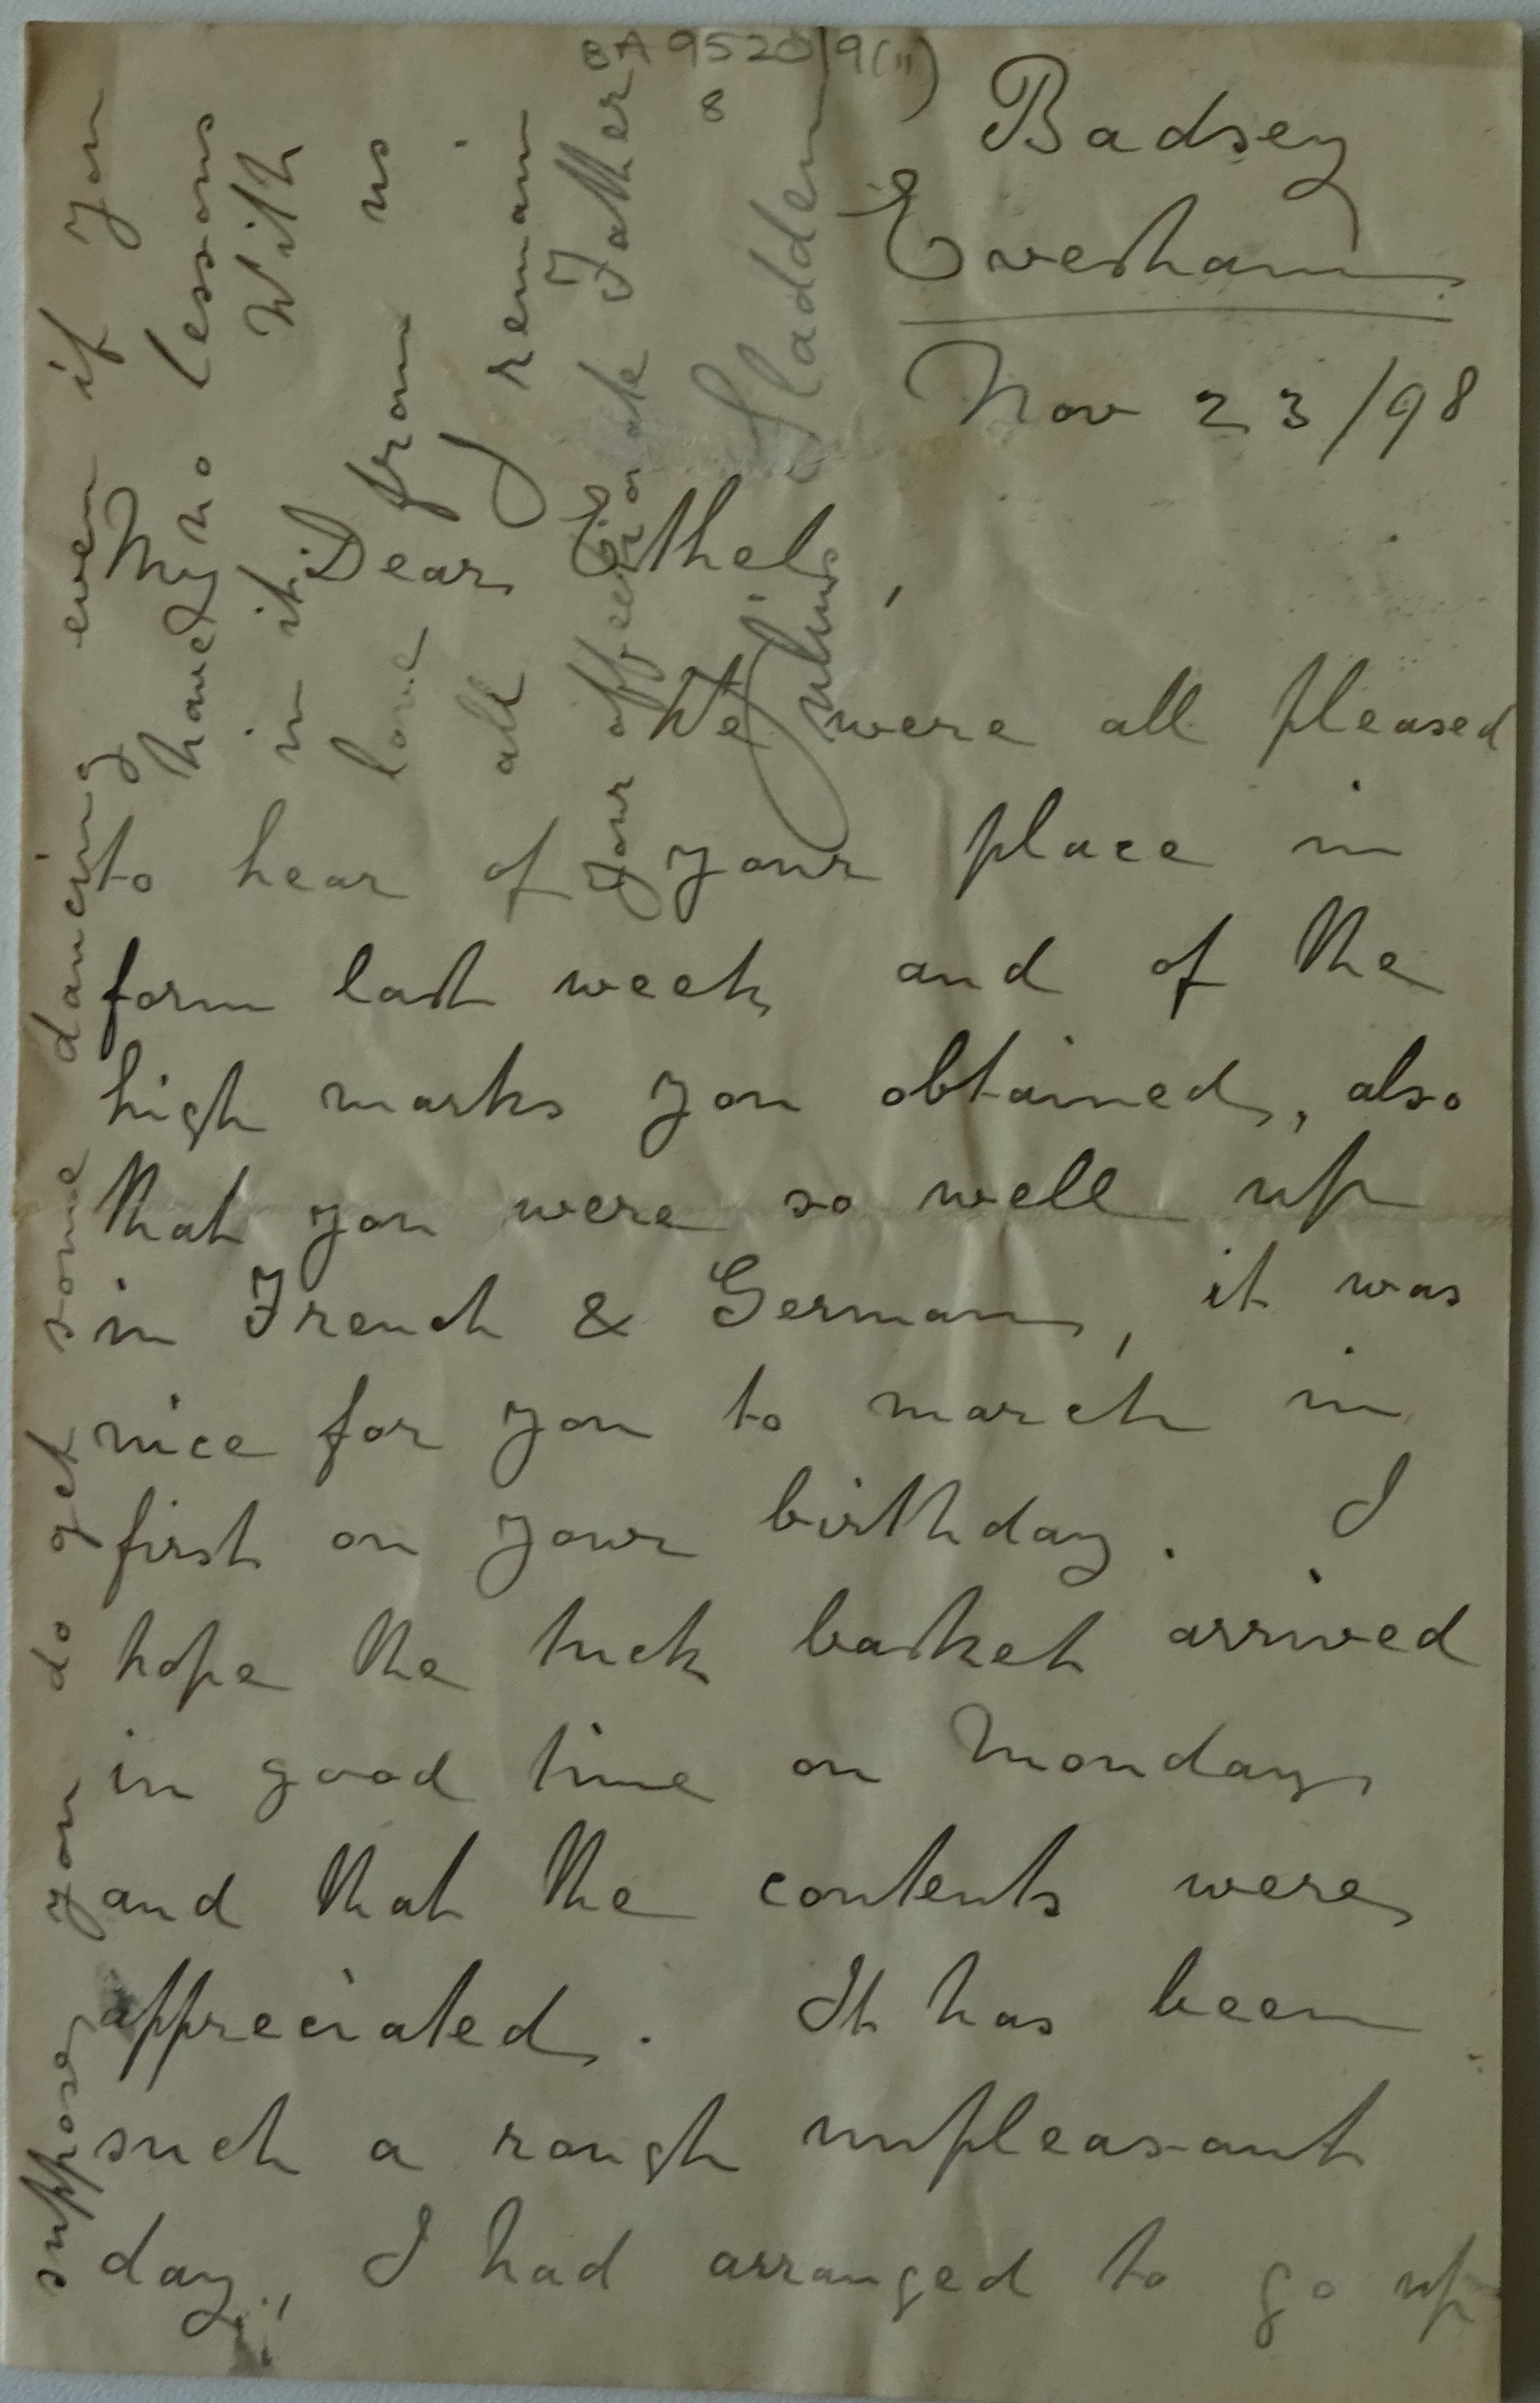 BA 9520/9(ii)
8
Badsey
Evesham
Nov 23/98
My Dear Ethel,
We were all pleased
to hear of your place in
form last week and of the
high marks you obtained, also
that you were so well up
in French & German, it was
nice for you to march in
first on your birthday. I
hope the tuck basket arrived
in good time on Monday
and that the contents were
appreciated. It has been
such a rough unpleasant
day, I had arranged to go up
suppose you do get some dancing even if you
have no lessons
in it. With
love from us
all I remain
Your affectionate Father
Julius Sladden